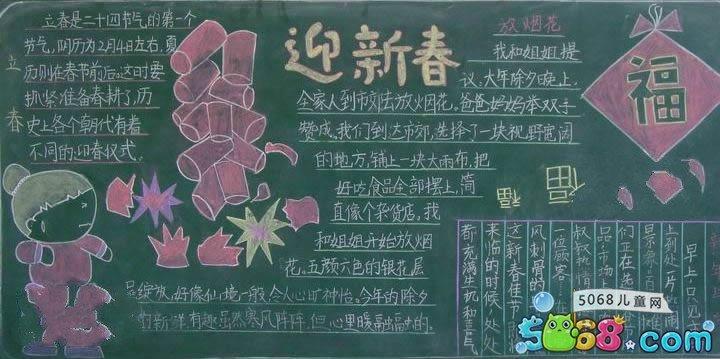 立春
立春是二十四节气的第一个
节气,阴历为2月4日左右,夏
历则在春节前后。这时要
抓紧准备春耕了,历
史上各个朝代有着
不同的迎春仪式。
迎新春
放烟花
我和姐姐提
议,大年除夕晚上,
全家人到市郊去放烟花。爸爸妈妈举双手
赞成。我们到达市郊,选择了一块视野宽阔
的地方,铺上一块大雨布,把
好吃食品全部摆上,简
直像个杂货店,我
和姐姐开始放烟
花。五颜六色的银花层
绽放,好像仙境一般,令人心旷神怡。今年的除夕
新鲜有趣虽然寒风阵阵,但心里暖融融的。
福
福
福
早上
上到处一片
景象
们正在
品市场
叔叔热情
一位顾客
风刺骨的
这新春佳节
来临的时候,处处
都充满生机和喜气
5068儿童网
5068.com